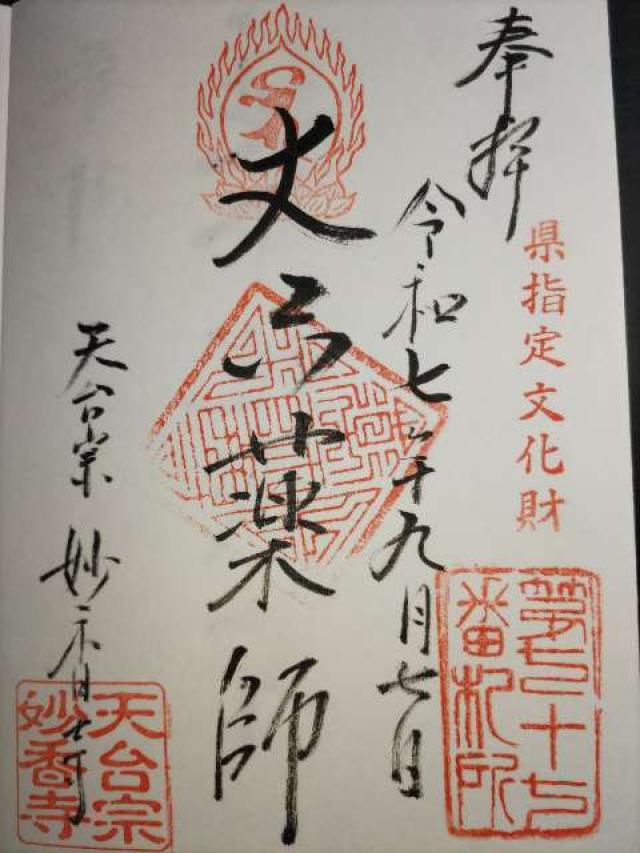 奉拝
県指定文化財
番札所
令和七年九月七日
丈六薬師
天台宗 妙香寺
天台宗
妙香寺